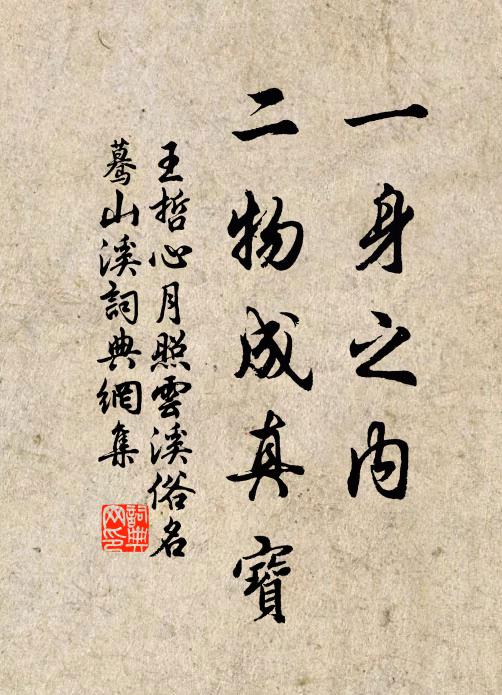 一身之内
二物成真寶
王哲心月照雲溪俗名
驀山溪詞典網集
詞典网印